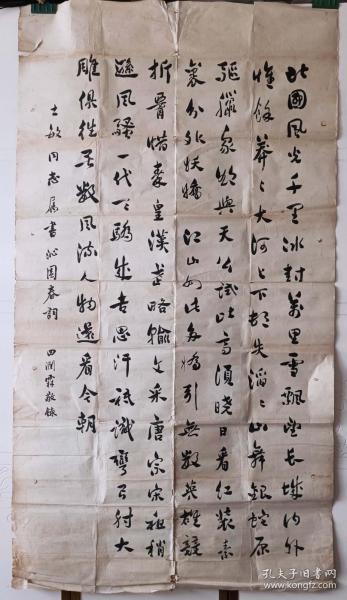 北国风光千里冰封万里雪飘望长城内外
惟馀莽々大河上下顿失滔々山舞银蛇原
驱腊象欲与天公试比高须晓日看红装素
裹分外妖娆江山如此多娇引无数英雄竞
折腰惜秦皇汉武略输文采唐宗宋祖稍
逊风骚一代天骄成吉思汗祇识弯弓射大
雕俱往矣数风流人物还看今朝
士敏同志属书沁园春词
田润霖敬录
孔夫子旧书网
www.kongfz.com